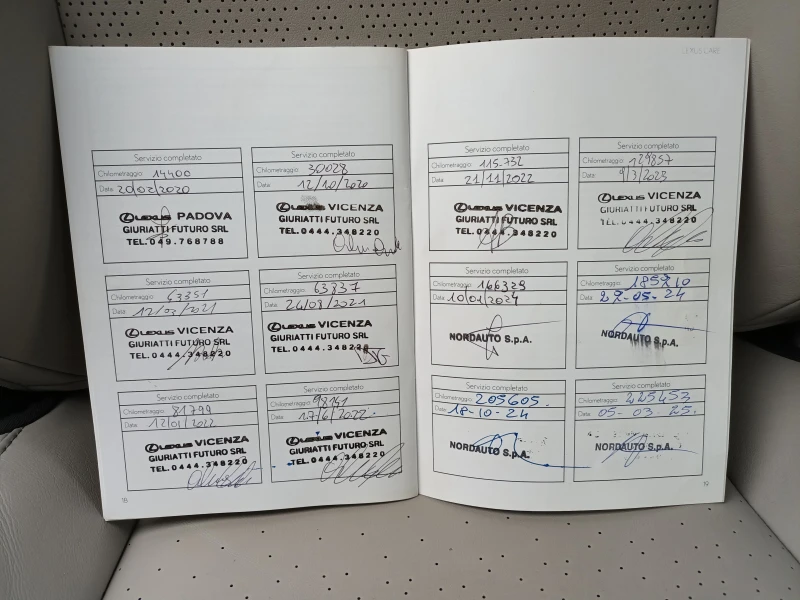 LEXUS CARE
Servizio completato
Chilometraggio 14400
Data 20/02/2020
LEXUS PADOVA
GIURIATTI FUTURO SRL
TEL.049.768788
Servizio completato
Chilometraggio 30028
Data 12/10/2020
LEXUS VICENZA
GIURIATTI FUTURO SRL
TEL.0444.348220
Servizio completato
Chilometraggio 43351
Data 12/02/2021
LEXUS VICENZA
GIURIATTI FUTURO SRL
TEL.0444.348220
Servizio completato
Chilometraggio 63837
Data 24/08/2021
LEXUS VICENZA
GIURIATTI FUTURO SRL
TEL.0444.348220
Servizio completato
Chilometraggio 81799
Data 12/01/2022
LEXUS VICENZA
GIURIATTI FUTURO SRL
TEL.0444.348220
Servizio completato
Chilometraggio 98141
Data 17/6/2022
LEXUS VICENZA
GIURIATTI FUTURO SRL
TEL.0444.348220
18
Servizio completato
Chilometraggio 115.732
Data 21/11/2022
LEXUS VICENZA
GIURIATTI FUTURO SRL
TEL.0444.348220
Servizio completato
Chilometraggio 129857
Data 9/3/2023
LEXUS VICENZA
GIURIATTI FUTURO SRL
TEL.0444.348220
Servizio completato
Chilometraggio 166329
Data 10/01/2024
NORDAUTO S.p.A.
Servizio completato
Chilometraggio 185910
Data 29-05-24
NORDAUTO S.p.A.
Servizio completato
Chilometraggio 205605.
Data 18-10-24
NORDAUTO S.p.A.
Servizio completato
Chilometraggio 225453
Data 05-03-25.
NORDAUTO S.p.A.
19